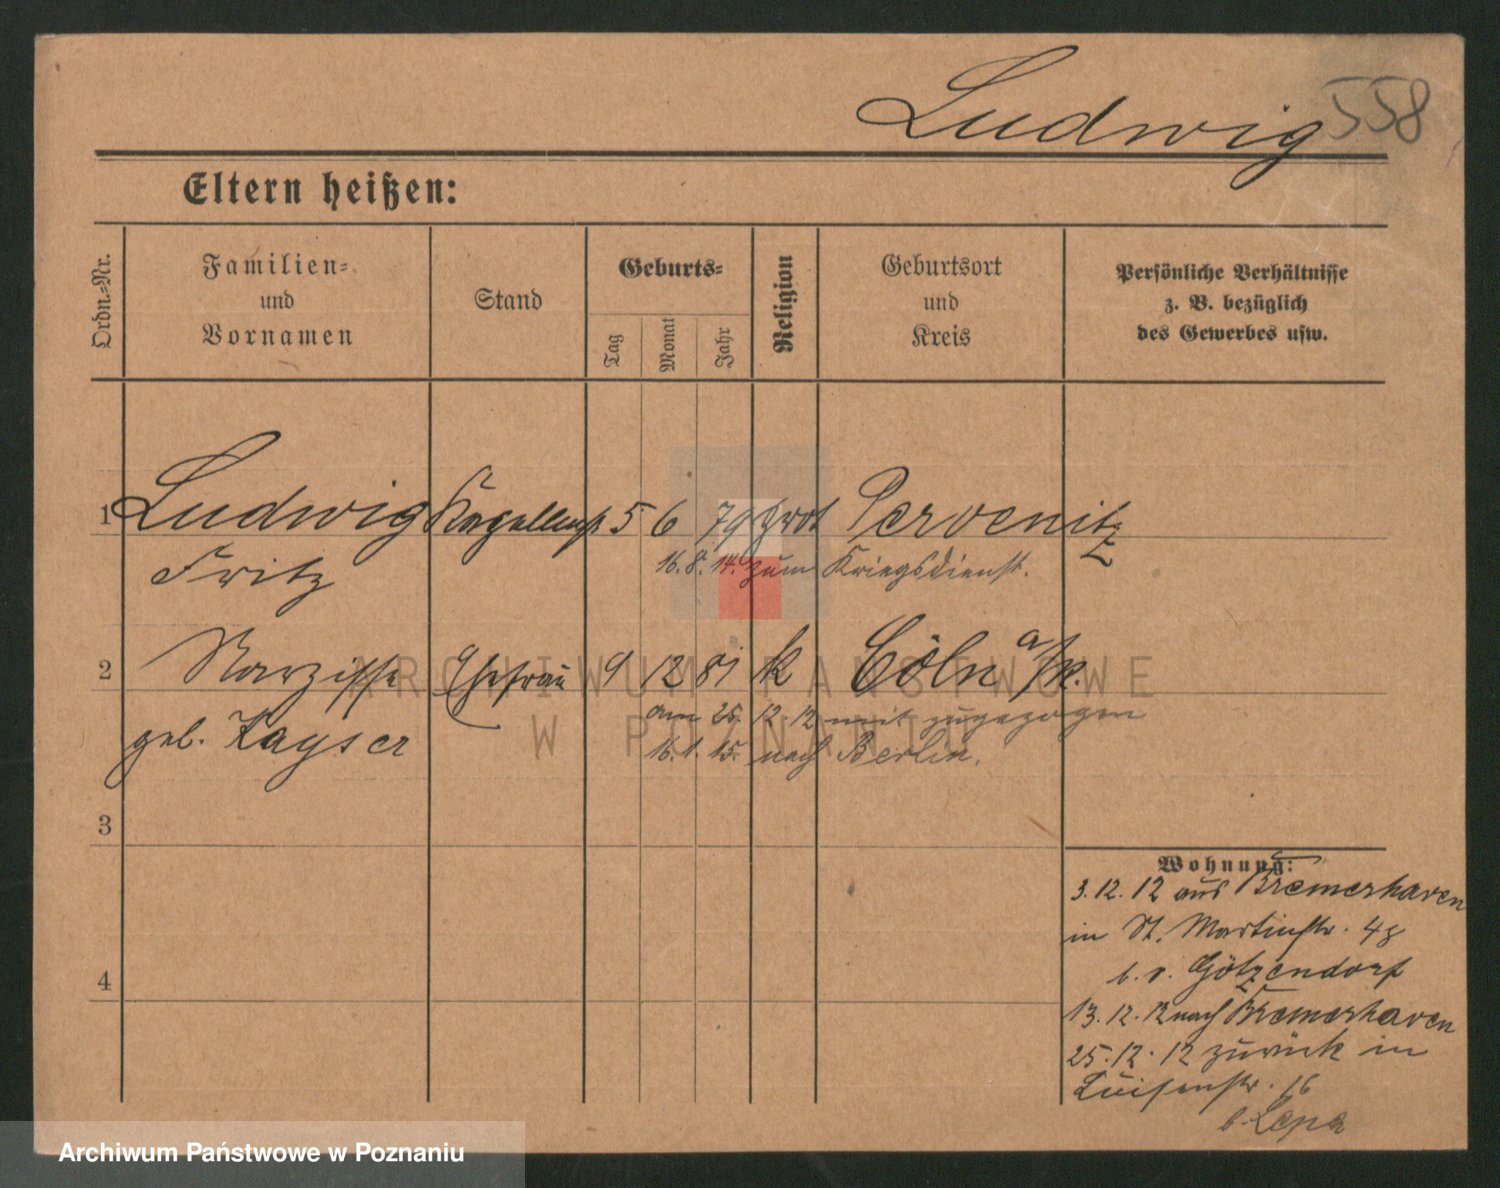 Ludwig 558
Eltern heißen:
Ordn.-Nr.
Familien-
und
Vornamen
Stand
Geburts-
Tag
Monat
Jahr
Religion
Geburtsort
und
Kreis
Persönliche Verhältnisse
z. B. bezüglich
des Gewerbes usw.
1 Ludwig 5 6 79 prot Pervenitz
Fritz
16.8.14. zum Kriegsdienst.
2 Narzisse Ehefrau 9 12 81 k Cöln a/R.
am 25. 12. 12 mit zugezogen
geb. Kayser
16.1.15. nach Berlin.
3
4
Wohnung:
3.12.12 aus Bremerhaven
in St. Martinstr. 48
b. v. Götzendorf
13.12.12 nach Bremerhaven
25.12.12 zurück in
Luisenstr. 16
b. Lepa
ARCHIWUM PAŃSTWOWE
W POZNANIU
Archiwum Państwowe w Poznaniu